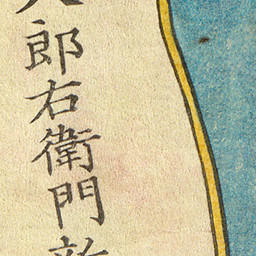 郎右衛門新